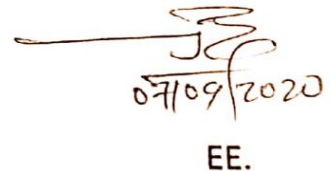 07/09/2020
EE.